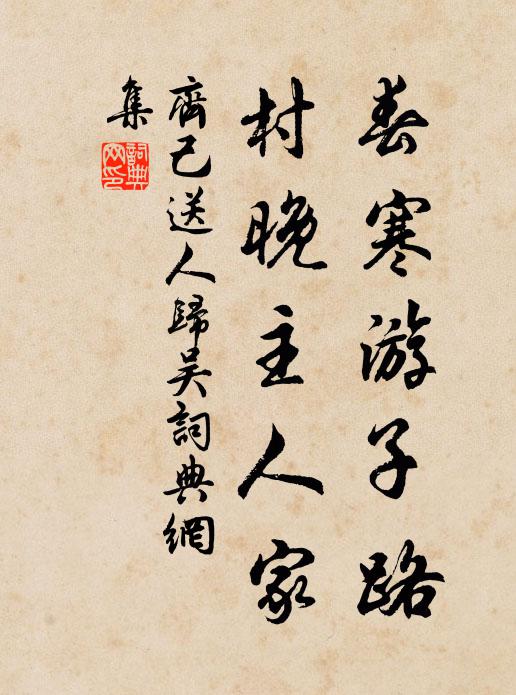 春寒游子路
村晚主人家
齊己送人歸吴詞典網
集
詞典
网印